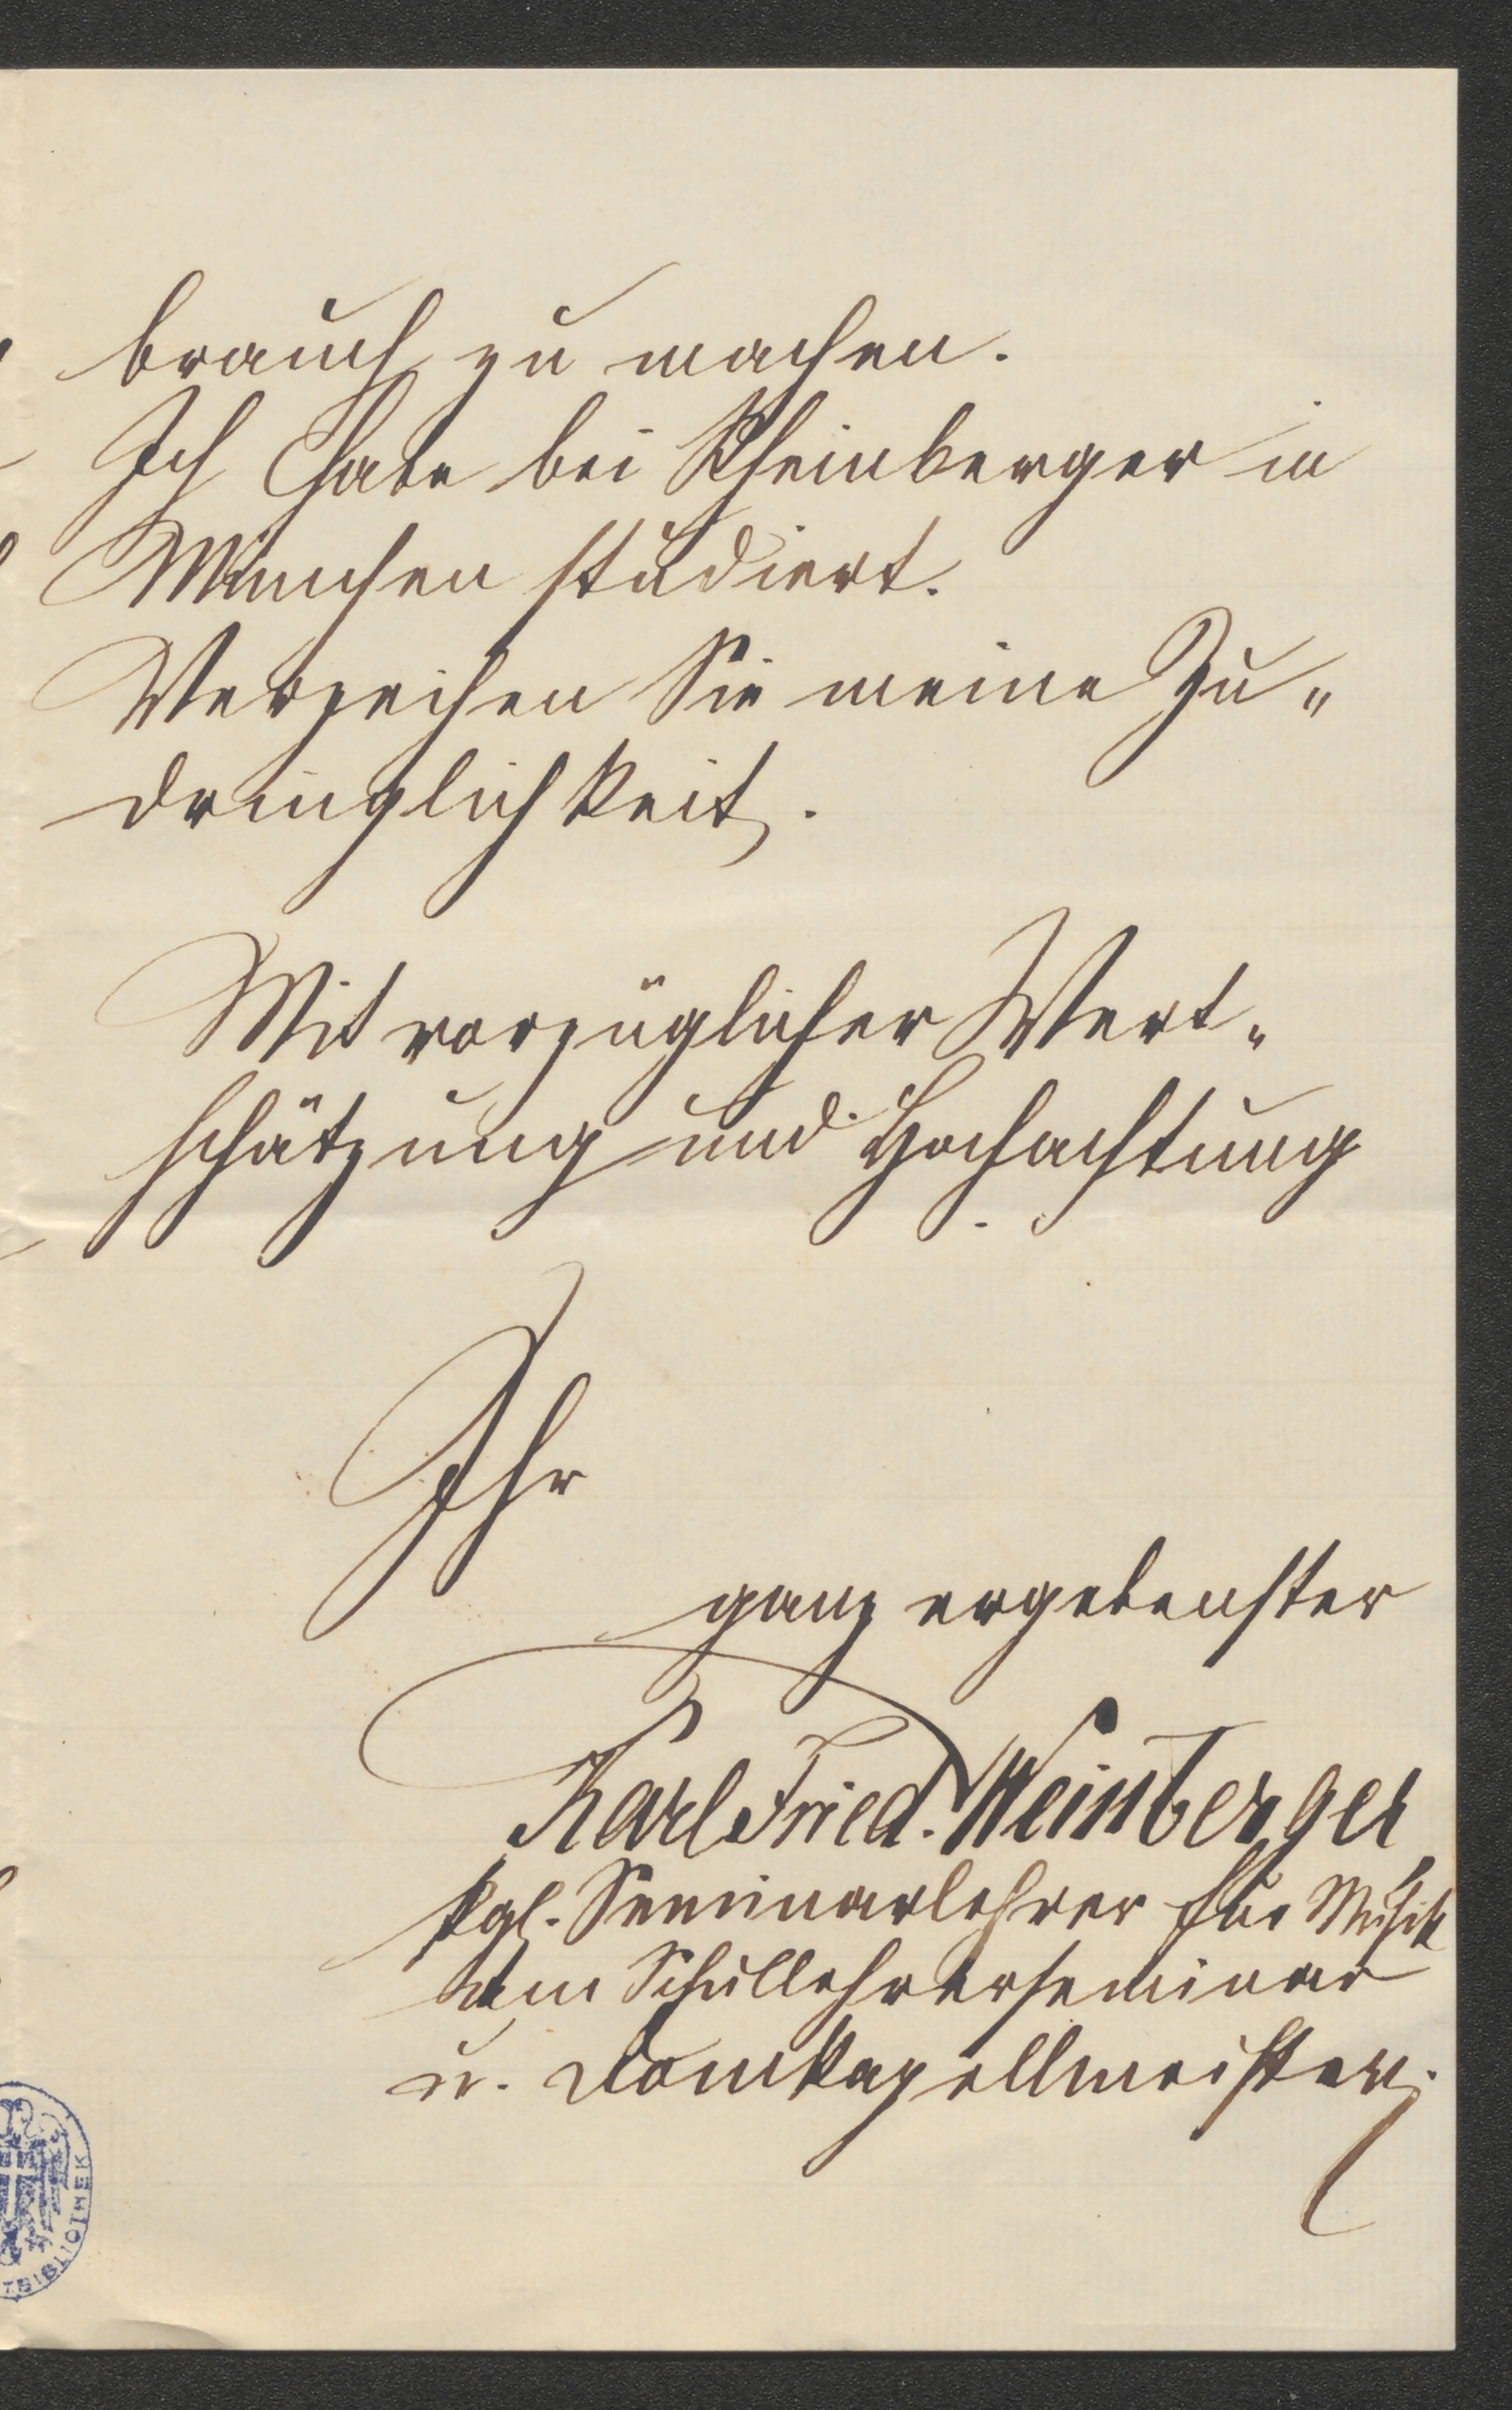 brauch zu machen.
Ich habe bei Rheinberger in
München studiert.
Verzeihen Sie meine Zu„
dringlichkeit.
Mit vorzüglicher Wert„
schätzung und Hochachtung
Ihr
ganz ergebenster
Karl Fried. Weinberger
kgl. Seminarlehrer für Musik
am Schullehrerseminar
u. Domkapellmeister.
BIBLIOTHEK